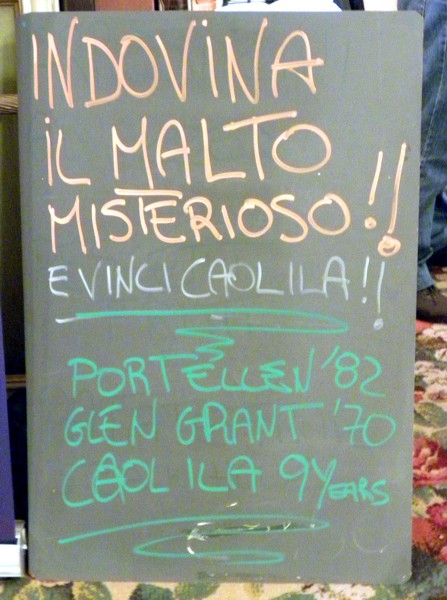 INDOVINA
IL MALTO
MISTERIOSO!!
E VINCI CAOL ILA!!
PORT ELLEN '82
GLEN GRANT '70
CAOL ILA 9 YEARS